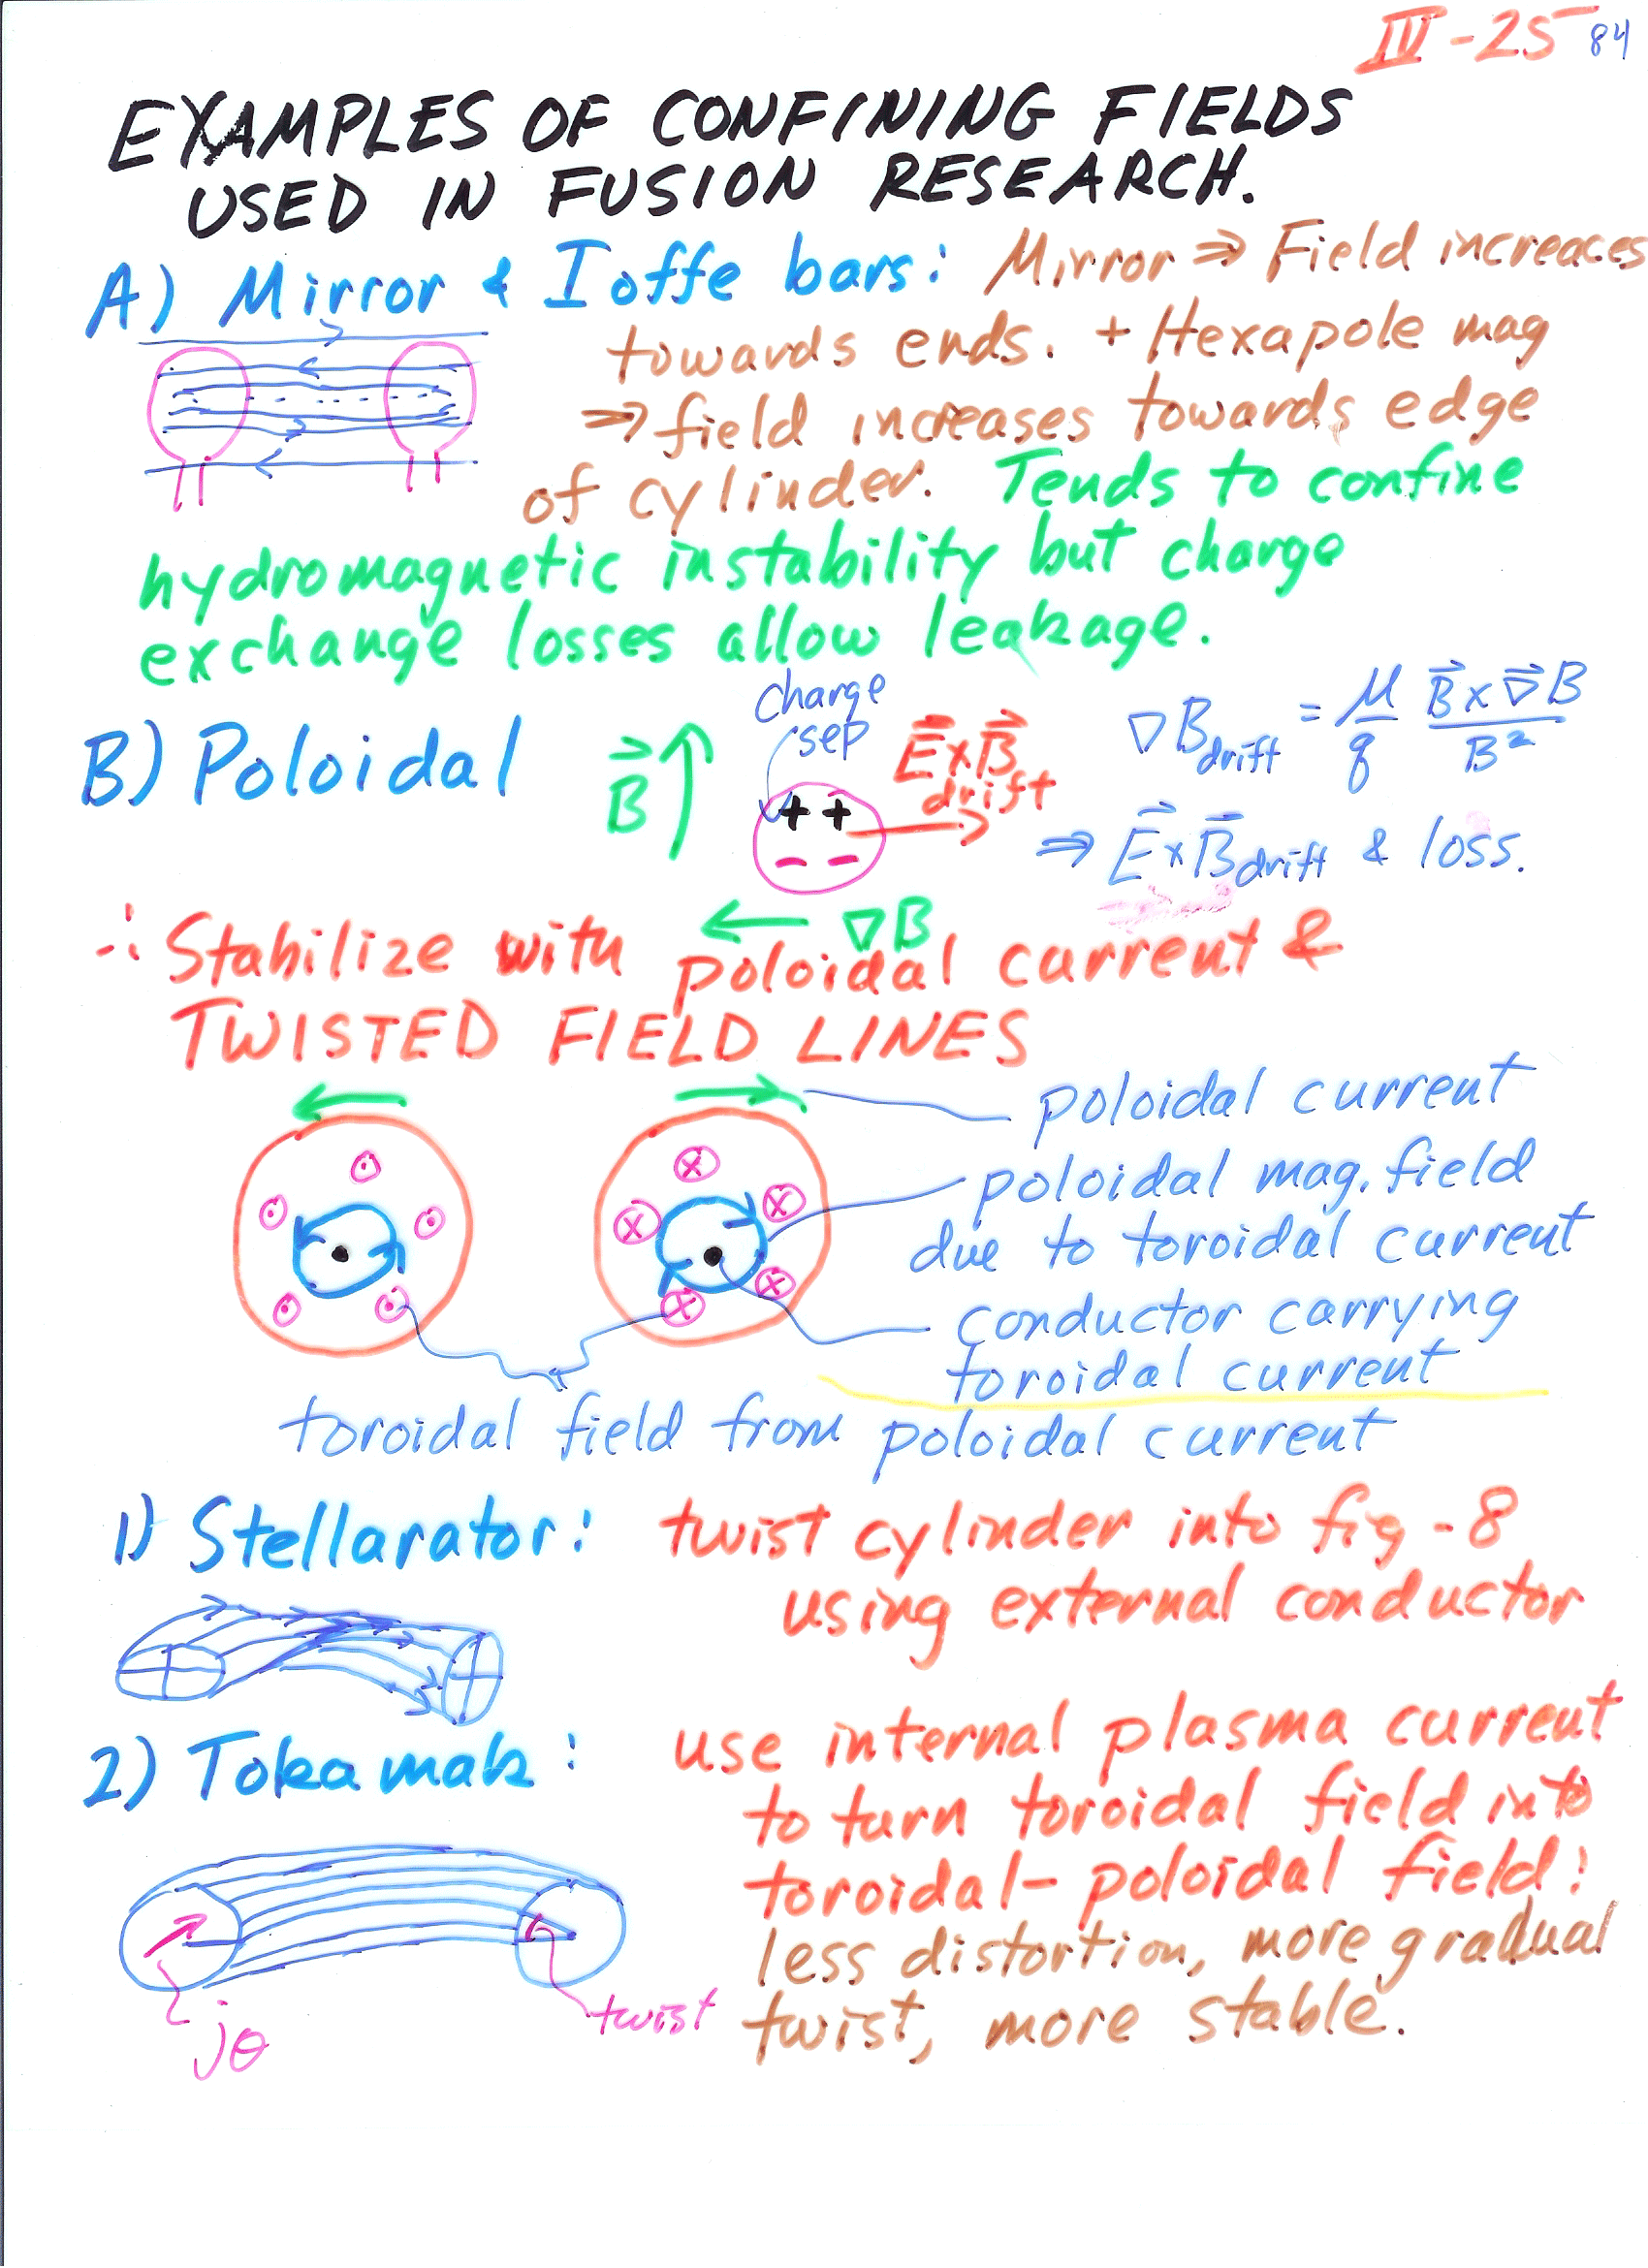 IV-25 84
EXAMPLES OF CONFINING FIELDS
USED IN FUSION RESEARCH.
A) Mirror & Ioffe bars: Mirror ⇒ Field increaces
towards ends. + Hexapole mag
⇒ field increases towards edge
of cylinder. Tends to confine
hydromagnetic instability but charge
exchange losses allow leakage.
B) Poloidal
B⃗
charge
sep
E⃗×B⃗
drift
∇B_drift = μ/q B⃗×∇⃗B/B²
++
--
⇒ E⃗×B⃗ drift & loss.
∇B
∴ Stabilize with poloidal current &
TWISTED FIELD LINES
poloidal current
poloidal mag. field
due to toroidal current
conductor carrying
toroidal current
toroidal field from poloidal current
1) Stellarator: twist cylinder into fig-8
using external conductor
2) Tokamak: use internal plasma current
to turn toroidal field into
toroidal-poloidal field:
less distortion, more gradual
twist, more stable.
twist
jθ